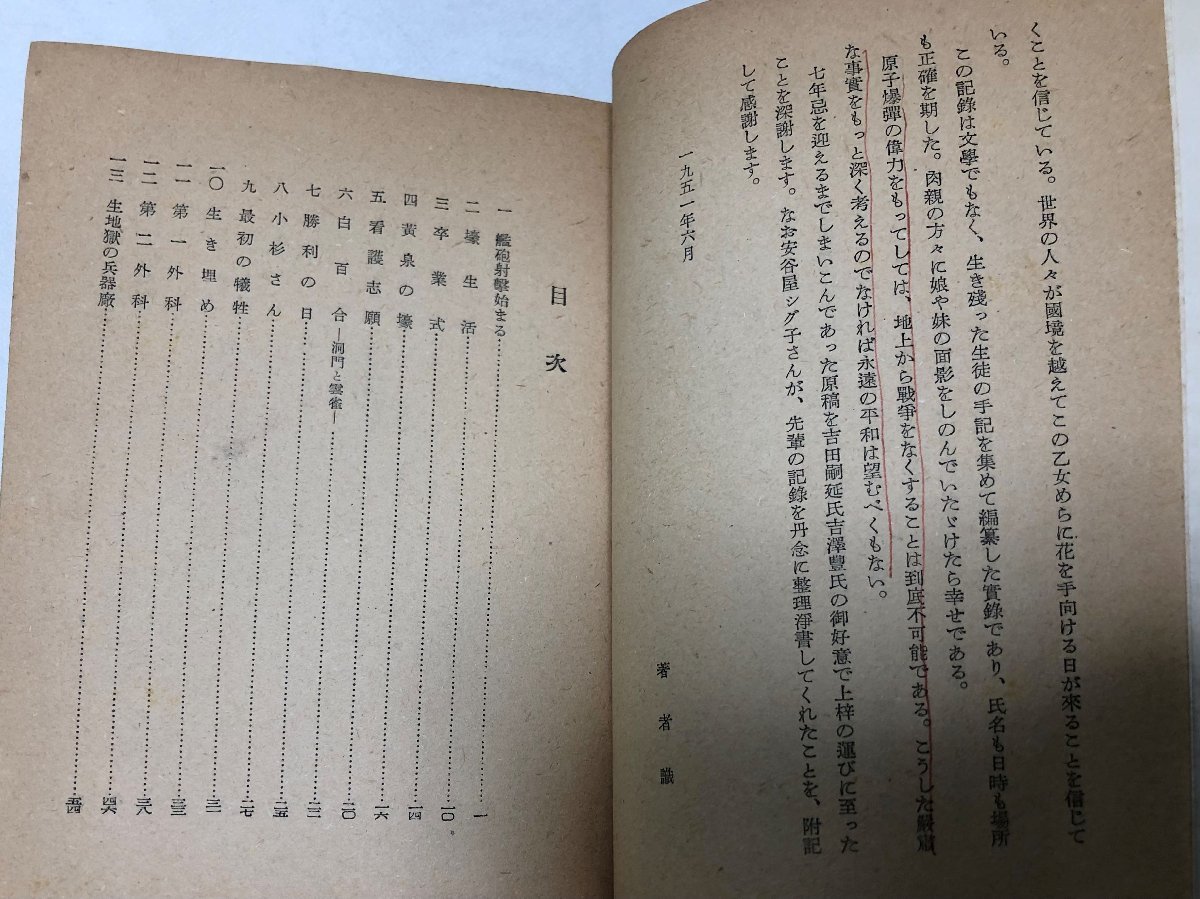 くことを信じている。世界の人々が國境を越えてこの乙女めらに花を手向ける日が來ることを信じて
いる。
この記錄は文學でもなく、生き殘った生徒の手記を集めて編纂した實錄であり、氏名も日時も場所
も正確を期した。肉親の方々に娘や妹の面影をしのんでいたゞけたら幸せである。
原子爆彈の偉力をもってしては、地上から戰爭をなくすることは到底不可能である。こうした嚴肅
な事實をもっと深く考えるのでなければ永遠の平和は望むべくもない。
七年忌を迎えるまでしまいこんであった原稿を吉田嗣延氏吉澤豐氏の御好意で上梓の運びに至った
ことを深謝します。なお安谷屋シグ子さんが、先輩の記錄を丹念に整理淨書してくれたことを、附記
して感謝します。
一九五一年六月
著者識
目次
一 艦砲射擊始まる……一
二 壕生活……
三 卒業式……一〇
四 黃泉の壕……一四
五 看護志願……一六
六 白百合―洞門と雲雀―……二〇
七 勝利の日……二二
八 小杉さん……二五
九 最初の犧牲……二七
一〇 生き埋め……三一
一一 第一外科……三三
一二 第二外科……三八
一三 生地獄の兵器廠……四六
五四